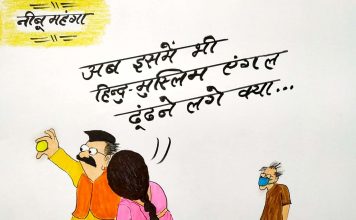 नीबू महंगा
अब इसमें भी
हिन्दु-मुस्लिम एंगल
ढूंढने लगे क्या...